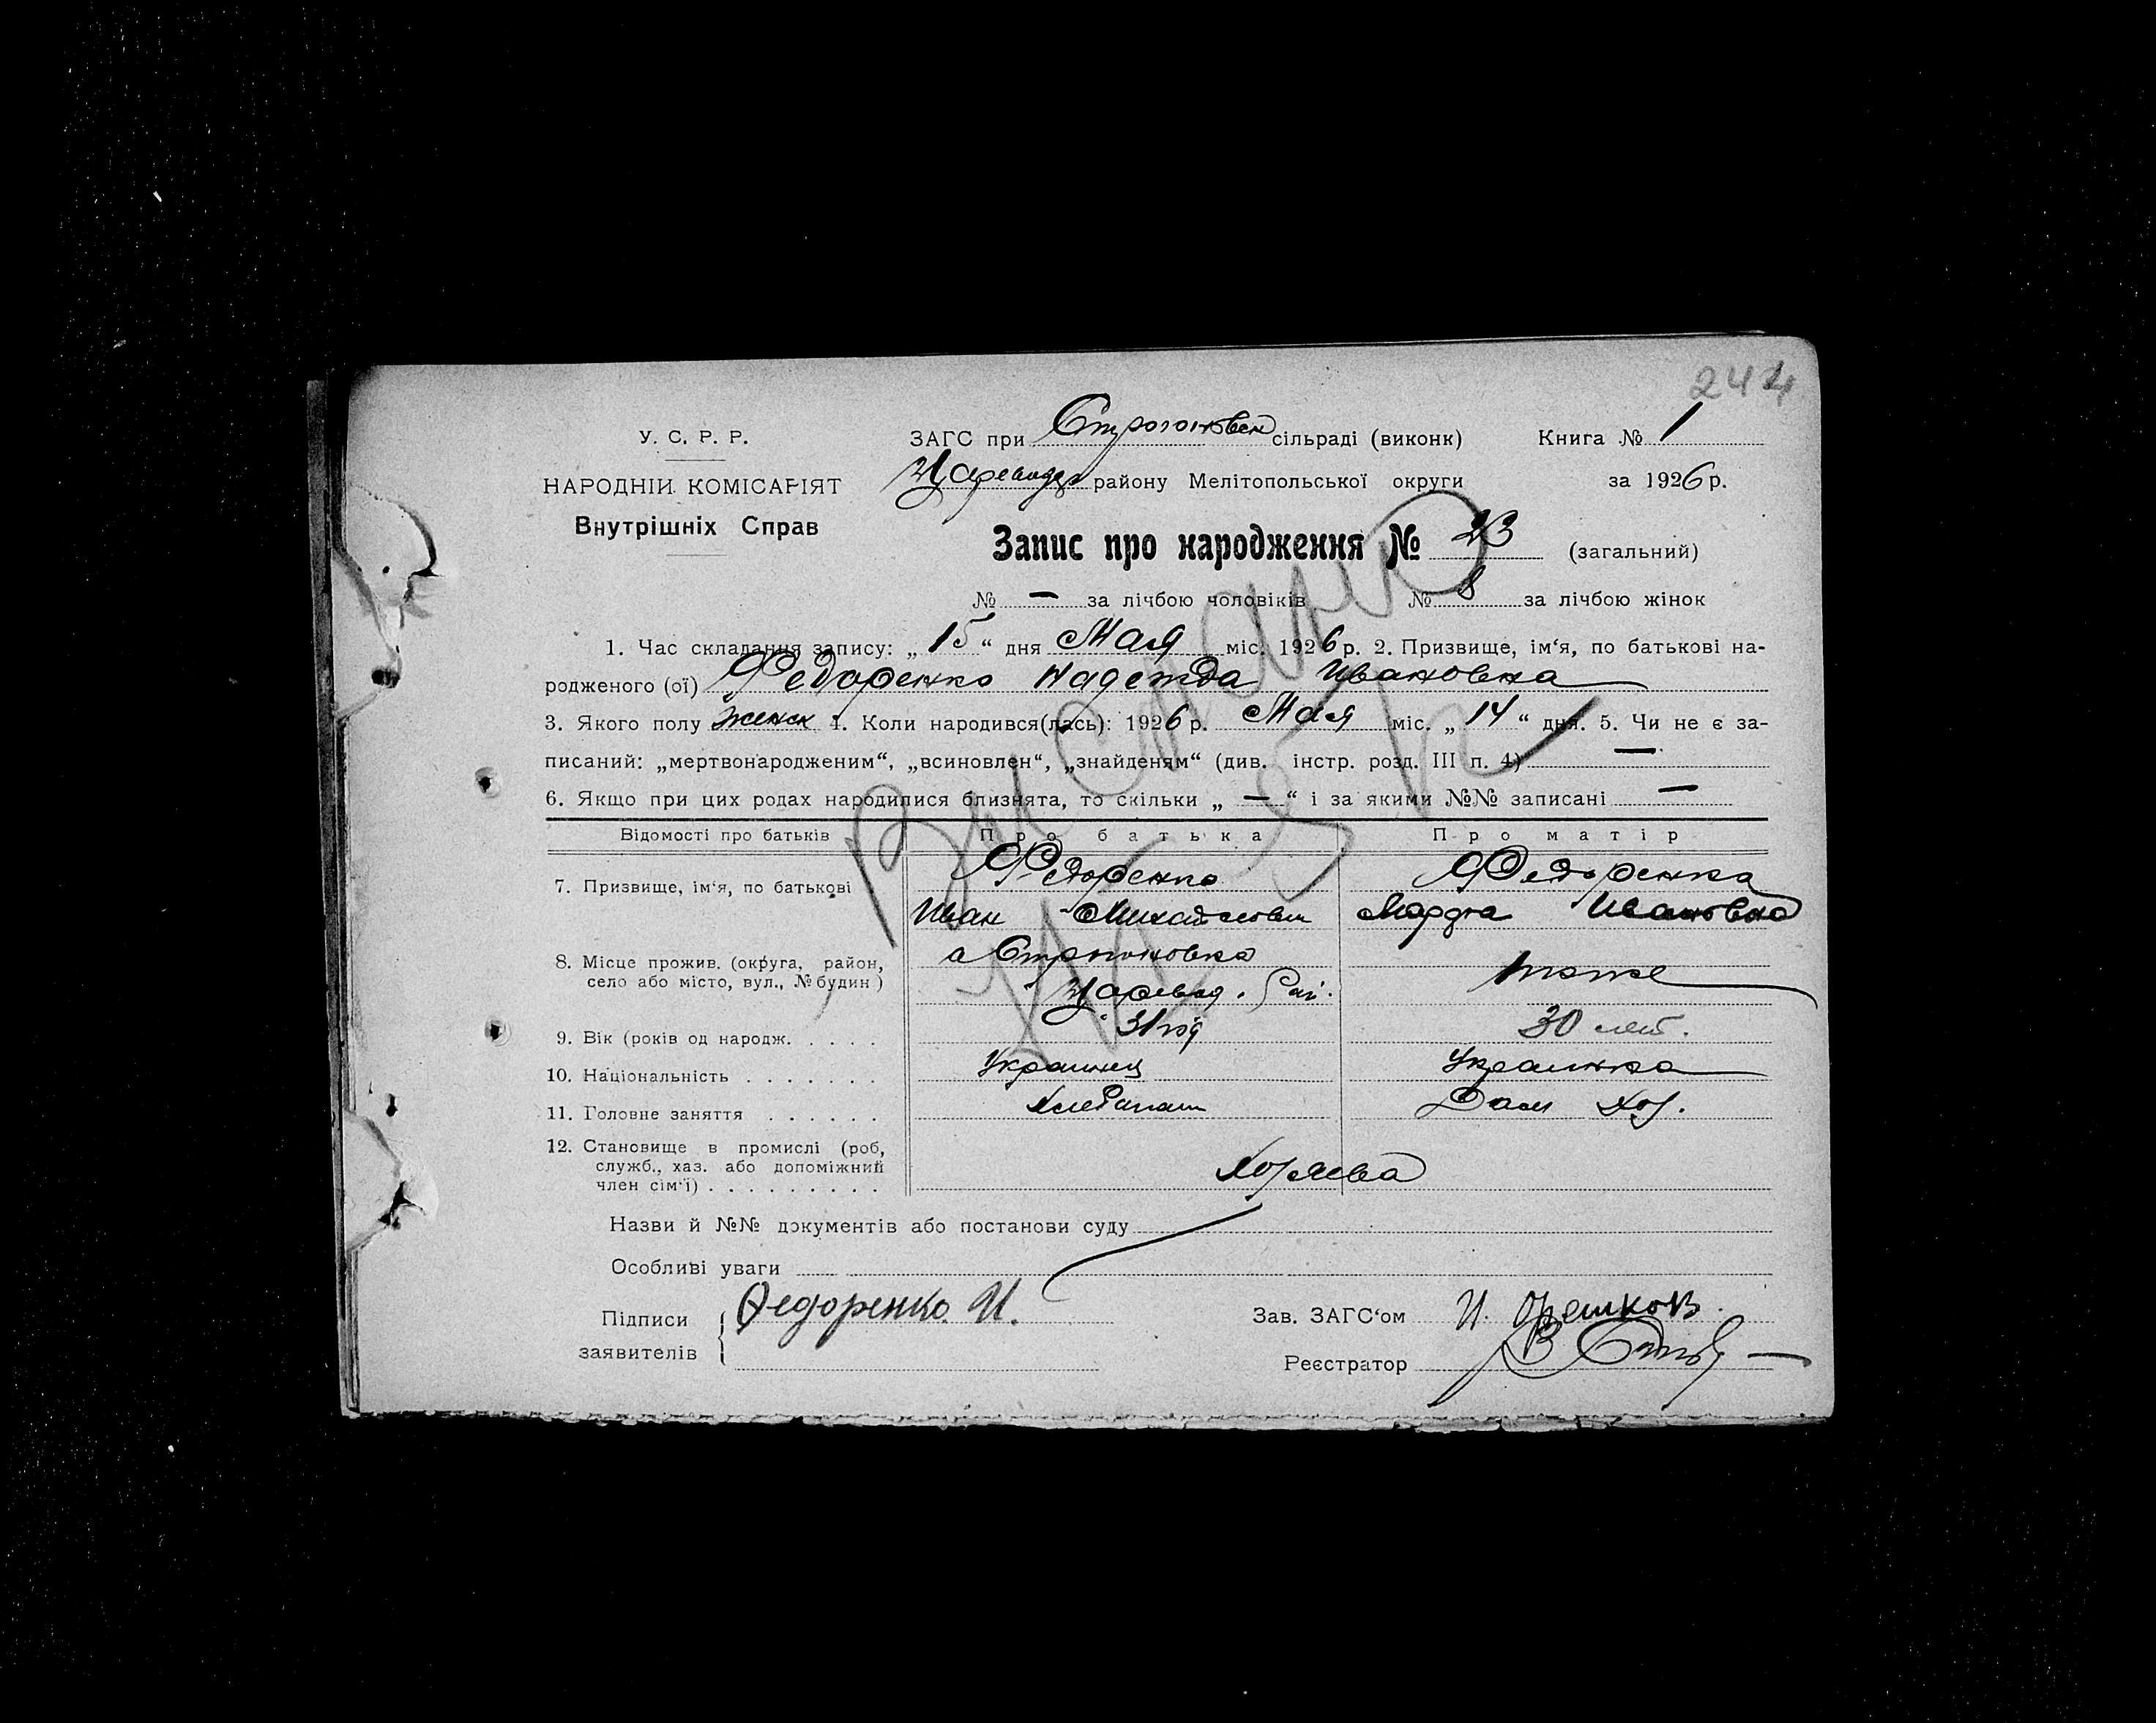 244
У. С. Р. Р.
НАРОДНІЙ КОМІСАРІЯТ
Внутрішніх Справ
ЗАГС при Строгоновск сільраді (виконк) Книга № 1
району Мелітопольської округи за 1926 р.
Запис про народження № 23 (загальний)
№ — за лічбою чоловіків № 8 за лічбою жінок
1. Час складання запису: „ 15 “ дня Мая міс. 1926 р. 2. Призвище, ім‘я, по батькові на-
родженого (ої) Федоренко Надежда Ивановна
3. Якого полу женск 4. Коли народився(лась): 1926 р. Мая міс. „ 14 “ дня. 5. Чи не є за-
писаний: „мертвонародженим“, „всиновлен“, „знайденям“ (див. інстр. розд. III п. 4) —
6. Якщо при цих родах народилися близнята, то скільки „ — “ і за якими №№ записані —
Відомості про батьків Про батька Про матір
7. Призвище, ім‘я, по батькові Федоренко Федоренко
Иван Михайлович Марфа Ивановна
8. Місце прожив. (округа, район, село або місто, вул., № будин) Строгоновка тоже
Царевод. Рай.
9. Вік (років од народж. . . . . 31 год 30 лет.
10. Національність . . . . . . . Украинец Украинка
11. Головне заняття . . . . . . Хлебопаш Дом Хоз.
12. Становище в промислі (роб, служб., хаз. або допоміжний член сім‘ї) . . . . . . . . . Хозяева
Назви й №№ документів або постанови суду
Особливі уваги
Підписи заявителів Федоренко И.
Зав. ЗАГС‘ом И. Орешков
Реєстратор
Виписано